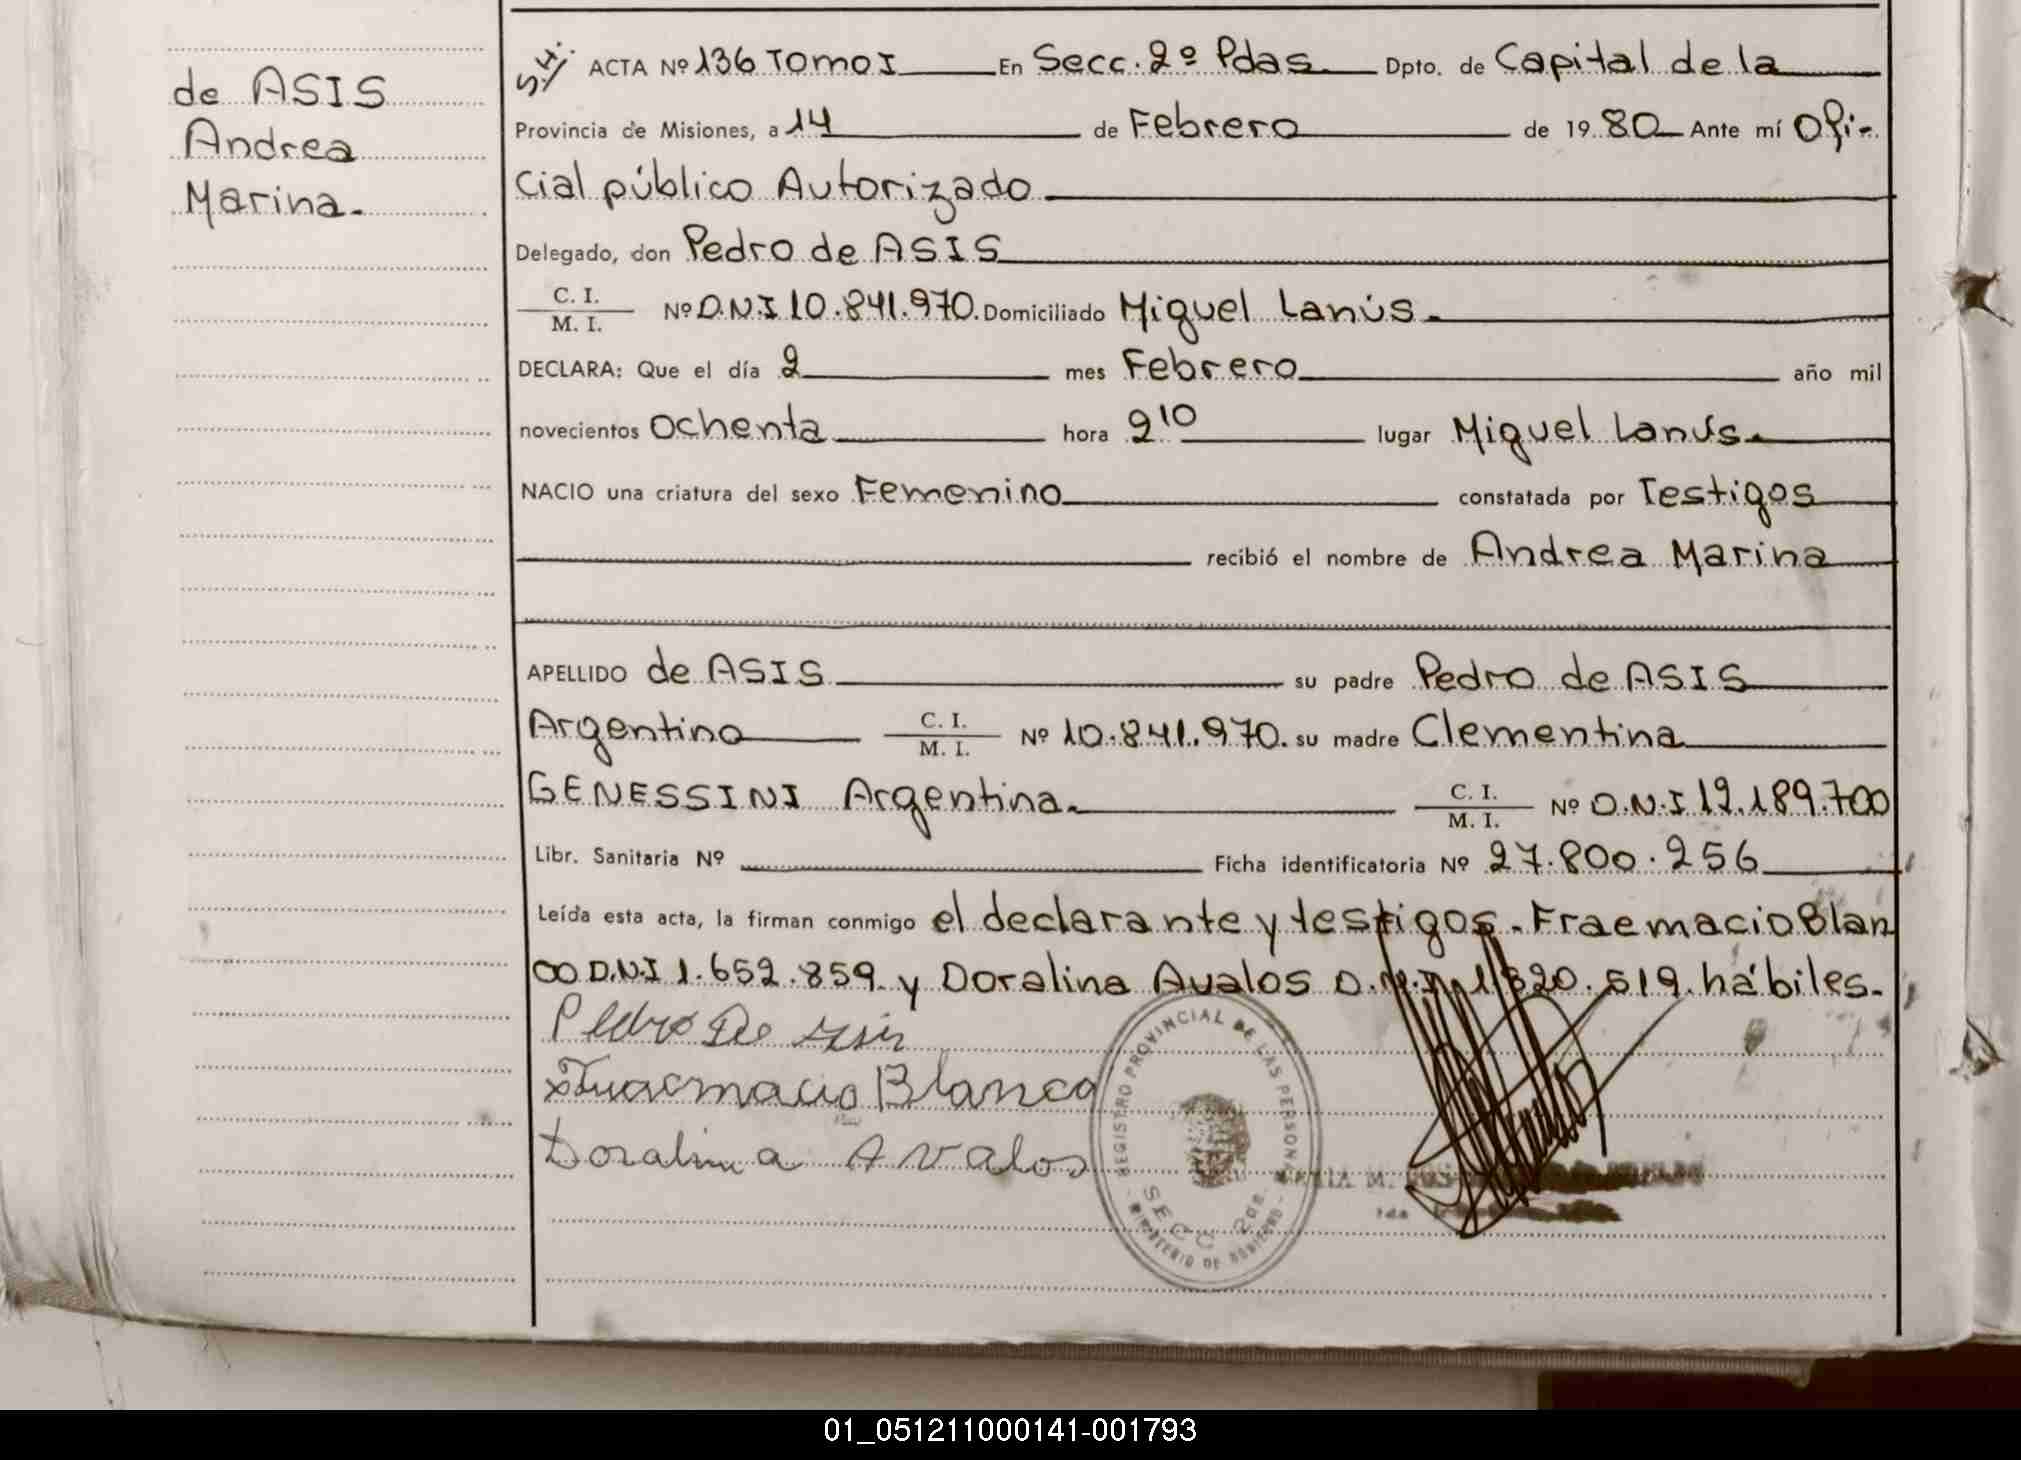 de ASIS
Andrea
Marina.
S.H. ACTA Nº 136 Tomo I En Secc. 2º Pdas Dpto. de Capital de la
Provincia de Misiones, a 14 de Febrero de 19 80 Ante mí Ofi-
cial público Autorizado
Delegado, don Pedro de ASIS
C. I.
M. I. Nº D.N.I 10.841.970. Domiciliado Miguel Lanús.
DECLARA: Que el día 2 mes Febrero año mil
novecientos ochenta hora 2 10 lugar Miguel Lanús.
NACIO una criatura del sexo Femenino constatada por Testigos
recibió el nombre de Andrea Marina
APELLIDO de ASIS su padre Pedro de ASIS
Argentino C. I.
M. I. Nº 10.841.970. su madre Clementina
GENESSINI Argentina. C. I.
M. I. Nº D.N.I 12.189.700
Libr. Sanitaria Nº Ficha identificatoria Nº 27.800.256
Leída esta acta, la firman conmigo el declarante y testigos. Fraemacio Blan
co D.N.I 1.652.859 y Doralina Avalos D.N.I 1.320.519 hábiles.
Pedro De Asis
Fraemacio Blanco
Doralina Avalos
REGISTRO PROVINCIAL DE LAS PERSONAS
SECC. 2da.
MINISTERIO DE GOBIERNO
01_051211000141-001793